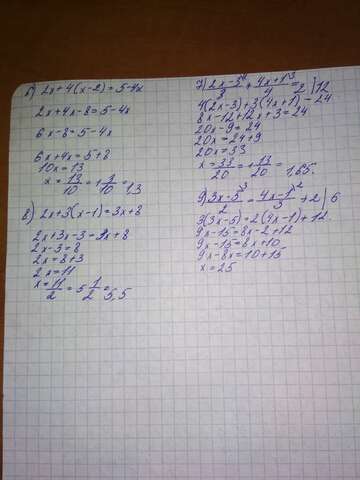 б) 2x+4(x-2)=5-4x
2x+4x-8=5-4x
6x-8=5-4x
6x+4x=5+8
10x=13
x=13/10=1 3/10=1,3
8) 2x+3(x-1)=3x+8
2x+3x-3=3x+8
2x-3=8
2x=8+3
2x=11
x=11/2=5 1/2=5,5
7) (2x-3)⁴/3+(4x+1)³/4=2 |12
4(2x-3)+3(4x+1)=24
8x-12+12x+3=24
20x-9=24
20x=24+9
20x=33
x=33/20=1 13/20=1,65.
9) (3x-5)³/2=(4x-1)²/3+2 | 6
3(3x-5)=2(4x-1)+12
9x-15=8x-2+12
9x-15=8x+10
9x-8x=10+15
x=25